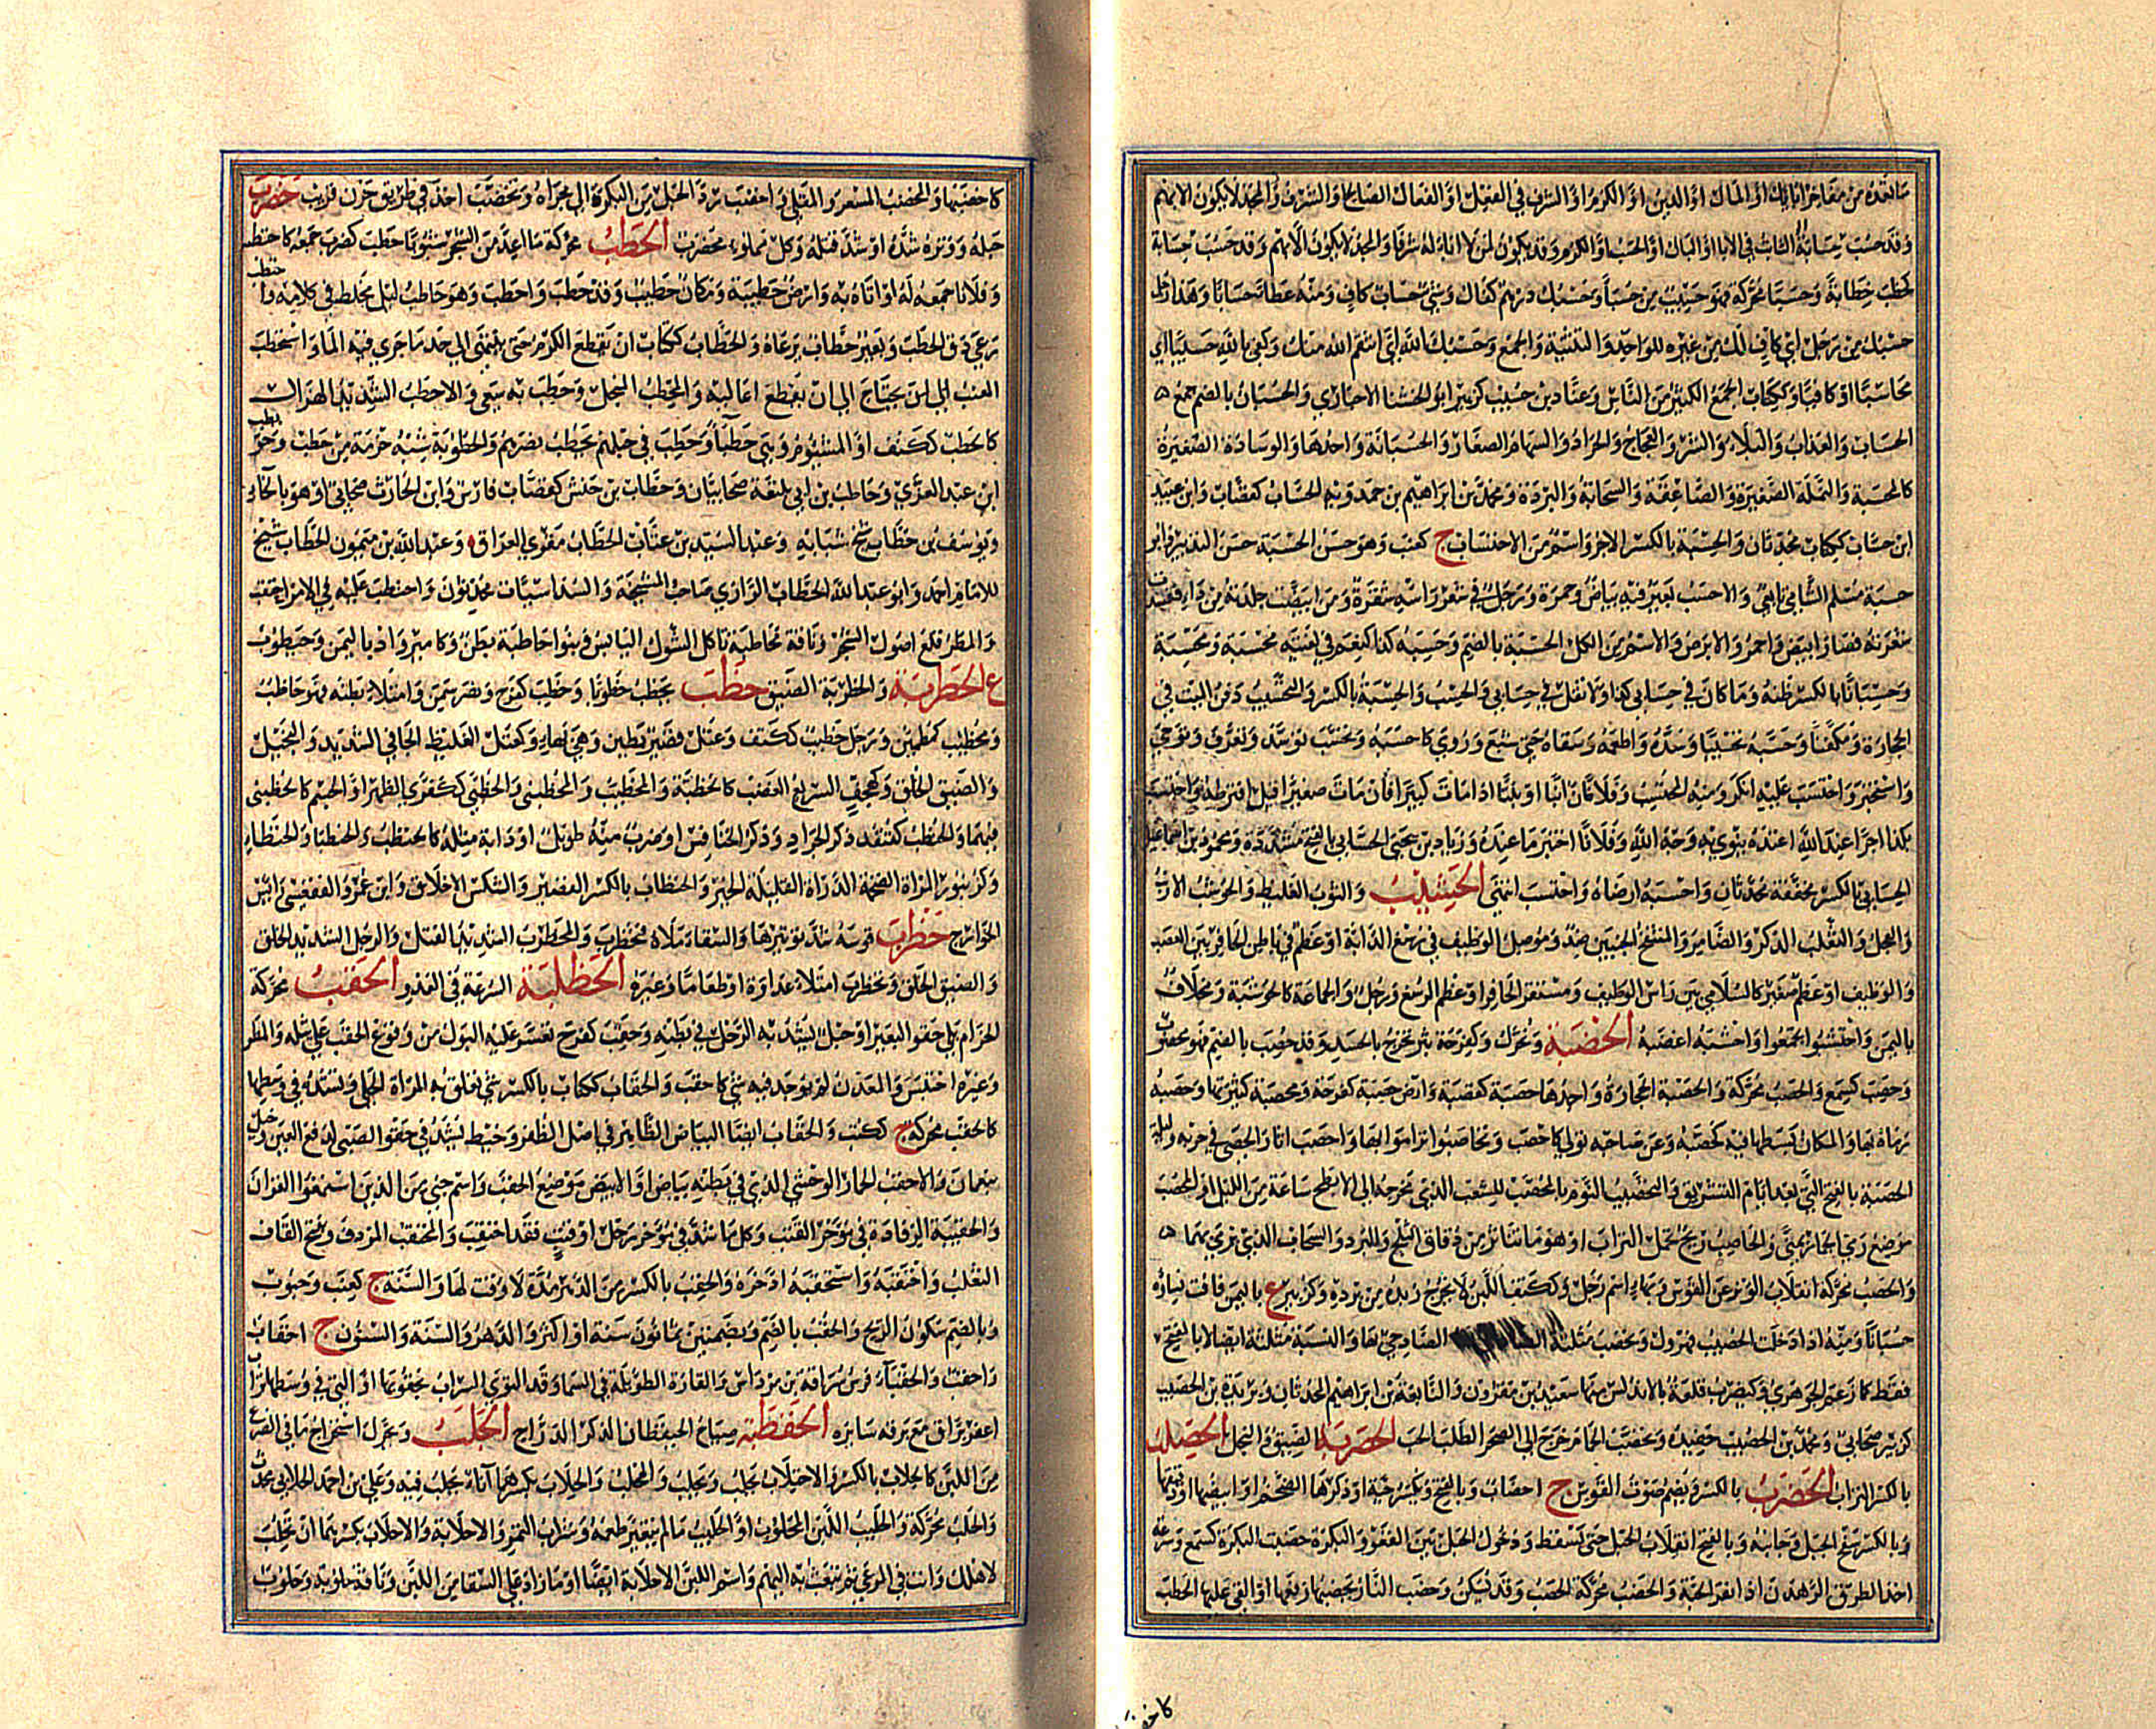 ما تعده من مفاخر آبائك او المال او الدين او الكرم او الشرف في الفعل او الفعال الصالح او الشرف والمجد لا يكون الا بهم
وقد حسب حسابة الثابت في الآباء او البال او الحسب او الكرم وقد يكون لمن لا آباء له شرفا والمجد لا يكون الا بهم وقد حسب حسابة
كخطب خطابة وحسبا محركة فهو حسيب من حسبا وحسبك درهم كفاك وشيء حساب كاف ومنه عطاء حسابا وهذا رجل
حسبك من رجل اي كاف لك من غيره للواحد والتثنية والجمع وحسبك الله اي انتقم الله منك وكفى بالله حسيبا اي
محاسبا او كافيا وككتاب الجمع الكثير من الناس وعباد بن حسيب كزبير ابو الخشنا اخباري والحسبان بالضم جمع
الحساب والعذاب والبلاء والشر والعجاج والجراد والسهام الصغار والحسبانة واحدها والوسادة الصغيرة
كالمحسبة والنملة الصغيرة والصاعقة والسحابة والبردة ومحمد بن ابراهيم بن حمدويه الحساب كقصاب وابن عبيد
ابن حساب ككتاب محدثان والحسبة بالكسر الاجر واسم من الاحتساب ج كعنب وهو حسن الحسبة حسن التدبير وابو
حسبة مسلم الشامي تابعي والاحسب بعير فيه بياض وحمرة ورجل في شعر راسه شقرة ومن ابيضت جلدته من داء ففسدت
شعرته فصار ابيض واحمر والابرص والاسم من الكل الحسبة بالضم وحسبه كذا كنعم في لغتيه محسبة ومحسبة
وحسبانا بالكسر ظنه وما كان في حسابي كذا ولا تقل في حسابي والحسب والحسبة بالكسر والتحسيب دفن الميت في
الحجارة او مكفنا وحسبه تحسيبا وسده واطعمه وسقاه حتى شبع وروي كاحسبه وتحسب توسد وتعرف وتوخى
واستخبر واحتسب عليه انكر ومنه المحتسب وفلان ابنا او بنتا اذا مات كبيرا فان مات صغيرا قيل افترطه واحتسب
بكذا اجرا عند الله اعتده ينوي به وجه الله وفلانا اختبر ما عنده وزياد بن يحيى الحسابي بالفتح مشددة ومحمود بن اسماعيل
الحسابي بالكسر مخففة محدثان واحسبه ارضاه واحتسب انتهى الحشيب والثوب الغليظ والحوشب الارنب
والعجل والثعلب الذكر والضامر والمنتفخ الجنبين ضد وموصل الوظيف في رسغ الدابة او عظم في باطن الحافر بين العصب
والوظيف او عظم صغير كالسلامى بين راس الوظيف ومستقر الحافر او عظم الرسغ ورجل والجماعة كالحوشبة ومخلاف
باليمن واحتشبوا تجمعوا واحشبه اغضبه الحصبة وتحرك وكفرحة بثر تخرج بالجسد وقد حصب بالضم فهو محصوب
وحصب كسمع والحصب محركة والحصبة الحجارة واحدها حصبة كقصبة وارض حصبة كفرحة ومحصبة كثيرتها وحصبه
رماه بها والمكان بسطها فيه كحصبه وعن صاحبه تولى كاحصب وتحاصبوا تراموا بها واحصب اثار الحصى في جريه وليلة
الحصبة بالفتح التي بعد ايام التشريق والتحصيب النوم بالمحصب للشعب الذي مخرجه الى الابطح ساعة من الليل او المحصب
موضع رمي الجمار بمنى والحاصب ريح تحمل التراب او هو ما تناثر من دقاق الثلج والبرد والسحاب الذي يرمي بهما
والحصب محركة انقلاب الوتر عن القوس وبهاء اسم رجل وككتف اللبن لا يخرج زبده من برده وكزبير ع باليمن فاقت نساؤه
حسبانا ومنه اذا دخلت الحصيب فهرول ويحصب مثلثة الصاد حي بها والنسبة مثلثة ايضا لا بالفتح
فقط كما زعم الجوهري وكيضرب قلعة بالاندلس منها سعيد بن مقرون والنابغة بن ابراهيم المحدثان وبريدة بن الحصيب
كزبير صحابي ومحمد بن الحصيب حفيده وتحصب الحمام خرج الى الصحراء لطلب الحب الحصربة الضيق والبخل الحصلب
بالكسر التراب الحضب بالكسر ويضم صوت القوس ج احضاب وبالفتح ويكسر حية او ذكرها الضخم او ابيضها او دقيقها
وبالكسر سفح الجبل وجانبه وبالفتح انقلاب الحبل حتى يسقط ودخول الحبل بين القعو والبكرة حضبت البكرة كسمع وسرعة
اخذ الطرق الرهدن اذا نقر الحبة والحضب محركة الحصب وقد تسكن وحضب النار يحضبها رفعها او القى عليها الحطب
كاحضـ
كاحضبها والمحضب المسعر والمقلى واحضب رد الحبل من البكرة الى مجراه وتحضب اخذ في طريق حزن قريب حضرب
حبله ووتره شده او شد فتله وكل مملوء محضرب الحطب محركة ما اعد من الشجر شبوبا حطب كضرب جمعه كاحتطب
وفلانا جمعه له او اتاه به وارض حطيبة ومكان حطيب وقد حطب واحطب وهو حاطب ليل مخلط في كلامه واحتطب
رعى دق الحطب وبعير حطاب يرعاه والحطاب ككتاب ان يقطع الكرم حتى ينتهي الى حد ما جرى فيه الماء واستحطب
العنب الى ان يحتاج الى ان يقطع اعاليه والمحطب المنجل وحطب به سعى والاحطب الشديد الهزال
كالحطب ككتف او المشئوم وبني حطبا وحطب في حبلهم يحطب نصرهم والحطوبة شبه حزمة من حطب وحويطب
ابن عبد العزى وحاطب بن ابي بلتعة صحابيان وحطاب بن حنش كقصاب فارس وابن الحارث صحابي او هو بالخاء
ويوسف بن حطاب شيخ شبابة وعبد السيد بن عتاب الحطاب مقرئ العراق وعبد الله بن ميمون الحطاب شيخ
للامام احمد وابو عبد الله الحطاب الرازي صاحب المشيخة والسداسيات محدثون واحتطب عليه في الامر احتقب
والمطر قلع اصول الشجر وناقة محاطبة تاكل الشوك اليابس وبنو حاطبة بطن وكامير واد باليمن وحيطوب
ع الحطربة والخطربة الضيق حظب يحظب حظوبا وحظب كفرح ونصر سمن وامتلا بطنه فهو حاظب
ومحظئب كمطمئن ورجل حظب ككتف وعتل قصير بطين وهي بهاء وكعتل الغليظ الجافي الشديد والبخيل
والضيق الخلق وكهجف السريع الغضب كالحظبة والمحظئب والمحظنبي والحظبى ككفرى الظهر او الجسم كالحظنبى
فيهما والحنظب كقنفذ ذكر الجراد وذكر الخنافس او ضرب منه طويل او دابة مثله كالحنظب والحنظبا والحنظباء
وكزنبور المراة الضخمة الرديئة القليلة الخير والحنظاب بالكسر القصير والشكس الاخلاق وابن عمرو الفقعسي وابين
الخوارج حظرب قوسه شد توتيرها والسقاء ملاه فتحظرب والمحظرب الشديد الفتل والرجل الشديد الخلق
والضيق الخلق وتحظرب امتلا عداوة او طعاما وغيره الحظلبة السرعة في العدو الحقب محركة
الحزام يلي حقو البعير او حبل يشد به الرحل في بطنه وحقب كفرح تعسر عليه البول من وقوع الحقب على ثيله والمطر
وغيره احتبس والمعدن لم يوجد فيه شيء كاحقب والحقاب ككتاب بالكسر شيء تعلق به المراة الحلي وتشده في وسطها
كالحقب محركة ج ككتب والحقاب ايضا البياض الظاهر في اصل الظفر وخيط يشد في حقو الصبي لدفع العين وجبل
بنعمان والاحقب الحمار الوحشي الذي في بطنه بياض او الابيض موضع الحقب واسم جني من الذين استمعوا القران
والحقيبة الرفادة في مؤخر القتب وكل ما شد في مؤخر رحل او قتب فقد احتقب والمحقب المردف وبفتح القاف
الثعلب واحتقبه واستحقبه ادخره والحقبة بالكسر من الدهر مدة لا وقت لها والسنة ج كعنب وحبوب
وبالضم سكون الريح والحقب بالضم وبضمتين ثمانون سنة او اكثر والدهر والسنة والسنون ج احقاب
واحقب والحقباء فرس سراقة بن مرداس والقارة الطويلة في السماء وقد التوى السراب بحقوبها او التي في وسطها تراب
اعفر براق مع برقة سايره الحقطبة صياح الحيقطان لذكر الدراج الحلب ويحرك استخراج ما في الضرع
من اللبن كالحلاب بالكسر والاحتلاب يحلب ويحلب والمحلب والحلاب بكسرهما اناء يحلب فيه وعلي بن احمد الحلابي محدث
والحلب محركة والحليب اللبن المحلوب او الحليب ما لم يتغير طعمه وشراب التمر والاحلابة والاحلاب بكسرهما ان تحلب
لاهلك وانت في المرعى ثم تبعث به اليهم واسم اللبن الاحلابة ايضا او ما زاد على السقاء من اللبن وناقة حلوبة وحلوب